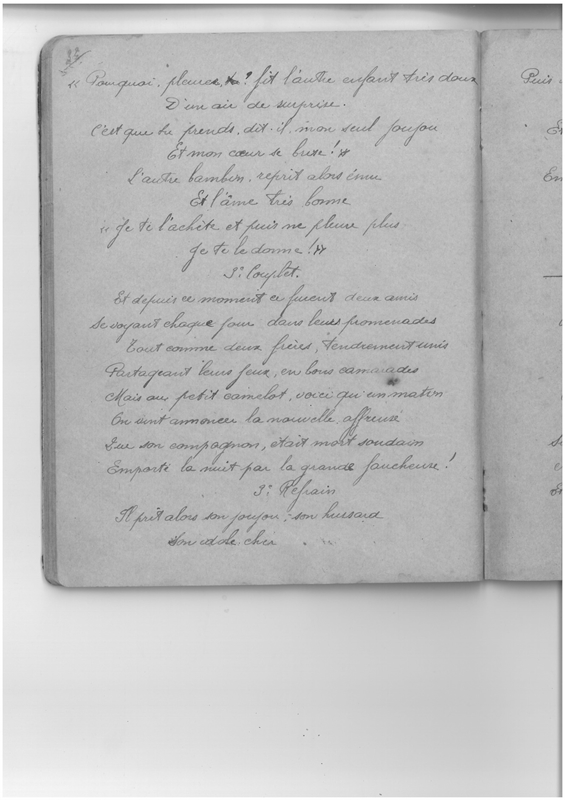 « Pourquoi, pleures, tu ? fit l'autre enfant très doux
D'un air de surprise.
C'est que tu prends, dit-il, mon seul joujou
Et mon cœur se brise ! »
L'autre bambin, reprit alors ému
Et l'âme très bonne
« Je te l'achète et puis ne pleure plus
Je te le donne ! »
3e Couplet.
Et depuis ce moment ce furent deux amis
Se voyant chaque jour, dans leurs promenades
Tout comme deux frères, tendrement unis
Partageant leurs jeux, en bons camarades
Mais au petit camelot, voici qu'un matin
On vint annoncer la nouvelle, affreuse
Que son compagnon, était mort soudain
Emporté la nuit par la grande faucheuse !
3e Refrain
Il prit alors son joujou, son hussard
Son idole cher
Puis
Et
En